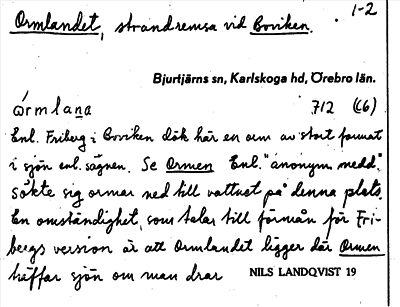 Ormlandet, strandremsa vid Boviken. 1-2
Bjurtjärns sn, Karlskoga hd, Örebro län.
ó̀rmlana 712 (C6)
Enl. Friberg i Boviken dök här en orm av stort format
i sjön enl. sägnen. Se Ormen Enl. "anonym medd".
sökte sig ormar ned till vattnet på denna plats.
En omständighet, som talar till förmån för Fri-
bergs version är att Ormlandet ligger där Ormen
träffar sjön om man drar NILS LANDQVIST 19